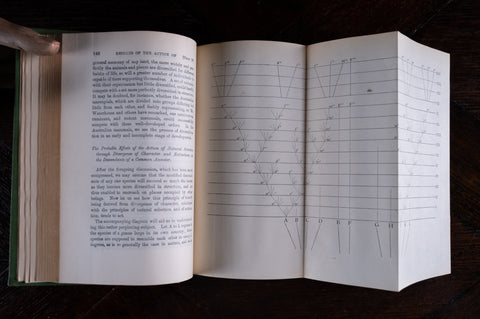 142 RESULTS OF THE ACTION OF
general economy of any land, the more widely and per-
fectly the animals and plants are diversified for different
habits of life, so will a greater number of individuals be
capable of there supporting themselves. A set of animals,
with their organisation but little diversified, could hardly
compete with a set more perfectly diversified in structure.
It may be doubted, for instance, whether the Australian
marsupials, which are divided into groups differing but
little from each other, and feebly representing, as Mr.
Waterhouse and others have remarked, our carnivorous,
ruminant, and rodent mammals, could successfully
compete with these well-developed orders. In the
Australian mammals, we see the process of diversifica-
tion in an early and incomplete stage of development.
The Probable Effects of the Action of Natural Selection
through Divergence of Character and Extinction, on
the Descendants of a Common Ancestor.
After the foregoing discussion, which has been much
compressed, we may assume that the modified descend-
ants of any one species will succeed so much the better
as they become more diversified in structure, and are
thus enabled to encroach on places occupied by other
beings. Now let us see how this principle of benefit
being derived from divergence of character, combined
with the principles of natural selection and of extinc-
tion, tends to act.
The accompanying diagram will aid us in understand-
ing this rather perplexing subject. Let A to L represent
the species of a genus large in its own country; these
species are supposed to resemble each other in unequal
degrees, as is so generally the case in nature, and as is
A B C D E F G H I